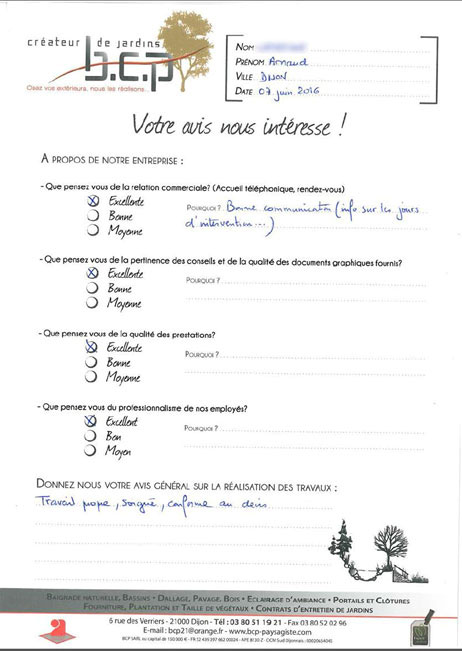 créateur de jardins
b.c.p
Osez vos extérieurs, nous les réalisons...
NOM
PRÉNOM Arnaud
VILLE DIJON
DATE 07 juin 2016
Votre avis nous intéresse !
A PROPOS DE NOTRE ENTREPRISE :
- Que pensez vous de la relation commerciale? (Accueil téléphonique, rendez-vous)
Excellente
POURQUOI ? Bonne communication (info sur les jours
Bonne
d'intervention...)
Moyenne
- Que pensez vous de la pertinence des conseils et de la qualité des documents graphiques fournis?
Excellente
POURQUOI ?
Bonne
Moyenne
- Que pensez vous de la qualité des prestations?
Excellente
POURQUOI ?
Bonne
Moyenne
- Que pensez vous du professionnalisme de nos employés?
Excellent
POURQUOI ?
Bon
Moyen
DONNEZ NOUS VOTRE AVIS GÉNÉRAL SUR LA RÉALISATION DES TRAVAUX :
Travail propre, soigné, conforme au devis
BAIGNADE NATURELLE, BASSINS • DALLAGE, PAVAGE, BOIS • ECLAIRAGE D'AMBIANCE • PORTAILS ET CLÔTURES
FOURNITURE, PLANTATION ET TAILLE DE VÉGÉTAUX • CONTRATS D'ENTRETIEN DE JARDINS
6 rue des Verriers - 21000 Dijon - Tél : 03 80 51 19 21 - Fax 03 80 52 02 96
E-mail : bcp21@orange.fr - www.bcp-paysagiste.com